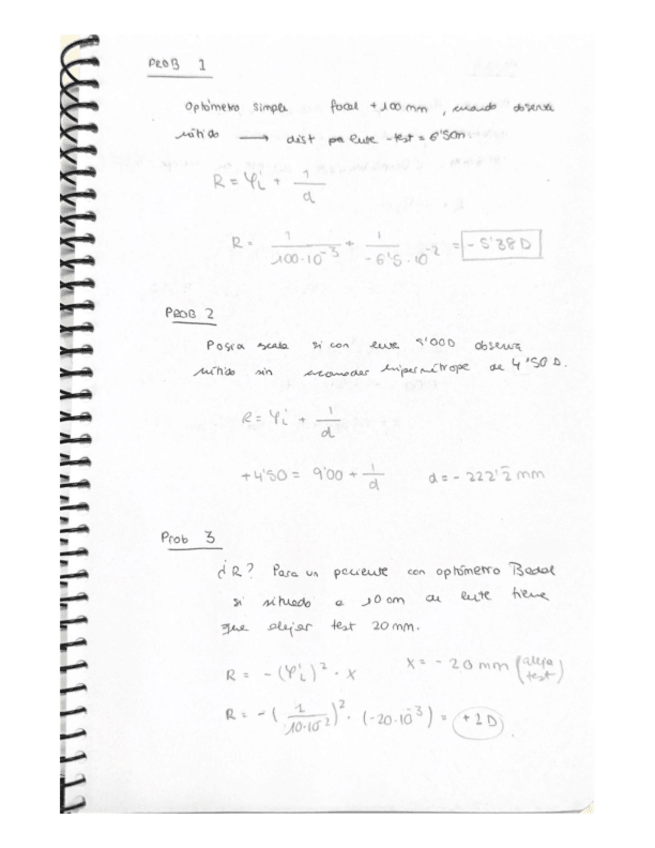 PROB 1
Optómetro simple focal +100 mm, cuando observa
nítido → dist lente - test = 6'50
R = φ'i + 1/d
R = 1/100·10^-3 + 1/-6'5·10^-2 = -5'38 D
PROB 2
si con lente observa
nítido sin acomodar hipermétrope de 4'50 D.
R = φ'i + 1/d
+4'50 = 9'00 + 1/d d = - 222'2 mm
Prob 3
¿R? Para un paciente con optómetro Badal
si situado a 10 cm de lente tiene
que alejar test 20 mm.
R = - (φ'i)² · x x = - 20 mm (aleja test)
R = - (1/10·10^-2)² · (-20·10^-3) = +2 D